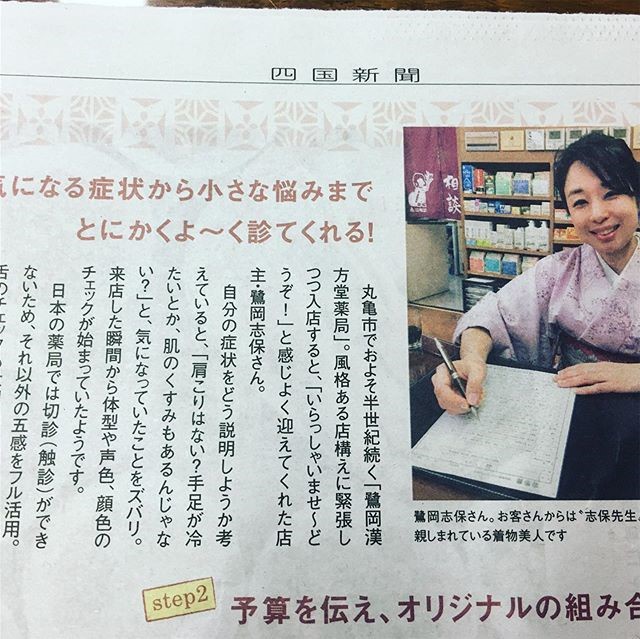 四国新聞
気になる症状から小さな悩みまで
とにかくよ〜く診てくれる!
相談
丸亀市でおよそ半世紀続く「鷺岡漢
方堂薬局」。風格ある店構えに緊張し
つつ入店すると、「いらっしゃいませ〜ど
うぞ!」と感じよく迎えてくれた店
主・鷺岡志保さん。
自分の症状をどう説明しようか考
えていると、「肩こりはない?手足が冷
たいとか、肌のくすみもあるんじゃな
い?」と、気になっていたことをズバリ。
来店した瞬間から体型や声色、顔色の
チェックが始まっていたようです。
日本の薬局では切診(触診)ができ
ないため、それ以外の五感をフル活用。
舌のチェック
鷺岡志保さん。お客さんからは〝志保先生〟
親しまれている着物美人です
step2
予算を伝え、オリジナルの組み合